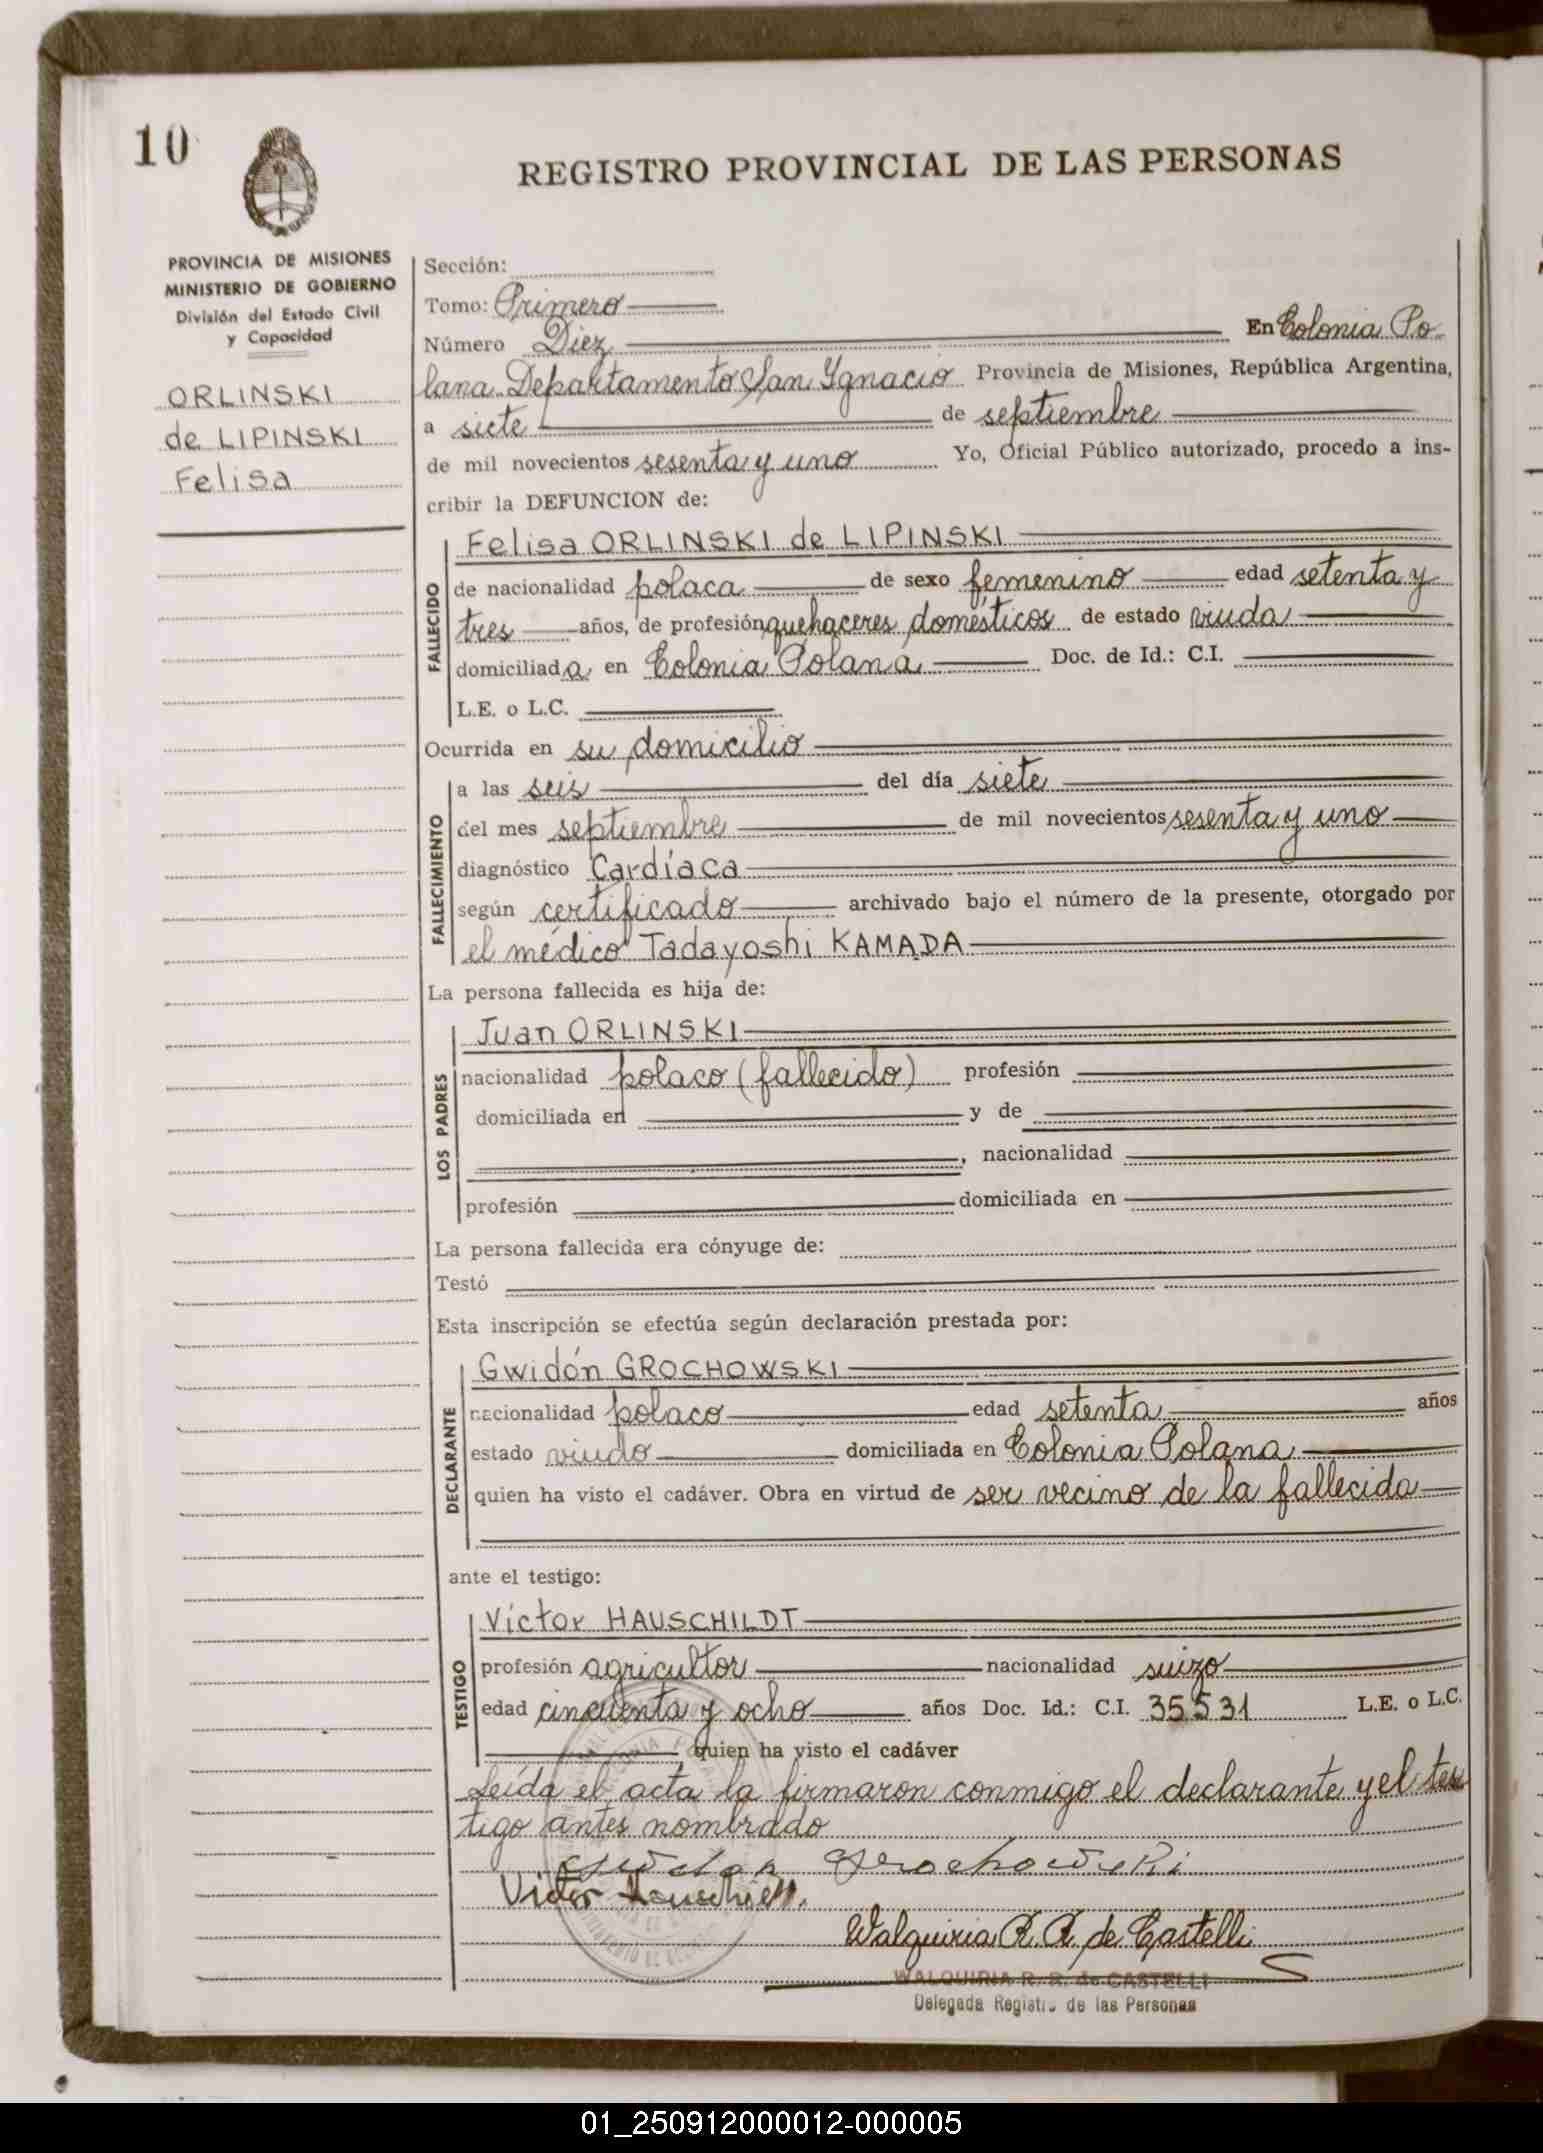 10
REGISTRO PROVINCIAL DE LAS PERSONAS
PROVINCIA DE MISIONES
MINISTERIO DE GOBIERNO
División del Estado Civil
y Capacidad
ORLINSKI
de LIPINSKI
Felisa
Sección:
Tomo: Primero
Número Diez En Colonia Po
lana Departamento San Ygnacio Provincia de Misiones, República Argentina,
a siete de septiembre
de mil novecientos sesenta y uno Yo, Oficial Público autorizado, procedo a ins-
cribir la DEFUNCION de:
FALLECIDO
Felisa ORLINSKI de LIPINSKI
de nacionalidad polaca de sexo femenino edad setenta y
tres años, de profesión quehaceres domésticos de estado viuda
domiciliada en Colonia Polana Doc. de Id.: C.I.
L.E. o L.C.
Ocurrida en su domicilio
FALLECIMIENTO
a las seis del día siete
del mes septiembre de mil novecientos sesenta y uno
diagnóstico Cardíaca
según certificado archivado bajo el número de la presente, otorgado por
el médico Tadayoshi KAMADA
La persona fallecida es hija de:
LOS PADRES
Juan ORLINSKI
nacionalidad polaco (fallecido) profesión
domiciliada en y de
, nacionalidad
profesión domiciliada en
La persona fallecida era cónyuge de:
Testó
Esta inscripción se efectúa según declaración prestada por:
DECLARANTE
Gwidón GROCHOWSKI
nacionalidad polaco edad setenta años
estado viudo domiciliada en Colonia Polana
quien ha visto el cadáver. Obra en virtud de ser vecino de la fallecida
ante el testigo:
TESTIGO
Víctor HAUSCHILDT
profesión agricultor nacionalidad suizo
edad cincuenta y ocho años Doc. Id.: C.I. 35531 L.E. o L.C.
, quien ha visto el cadáver
Leída el acta la firmaron conmigo el declarante y el tes
tigo antes nombrado
Grochowski
Victor
Walquiria R. R. de Castelli
WALQUIRIA R. R. de CASTELLI
Delegada Registro de las Personas
01_250912000012-000005